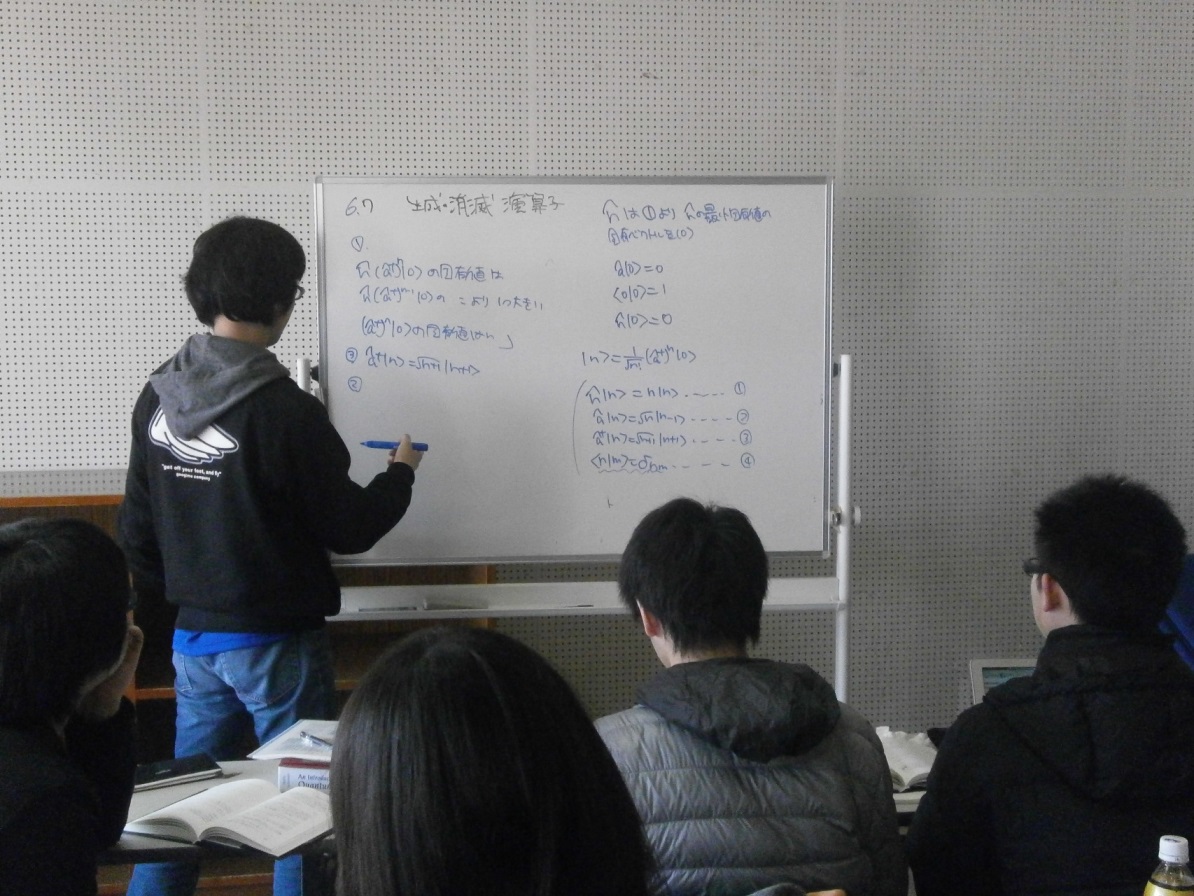 6.7 生成・消滅 演算子
①
n̂(â†)ⁿ|0⟩の固有値は
より1つ大きい
(â†)ⁿ|0⟩の固有値はn 」
③ â†|n⟩=√n+1|n+1⟩
②
n̂は①より n̂の最小固有値の
固有ベクトルを|0⟩
â|0⟩=0
⟨0|0⟩=1
n̂|0⟩=0
|n⟩=1/√n!(â†)ⁿ|0⟩
n̂|n⟩=n|n⟩ ①
â|n⟩=√n|n-1⟩ ②
â†|n⟩=√n+1|n+1⟩ ③
⟨n|m⟩=δnm ④
"put off your feet, and fly"
An Introduc
Quantu